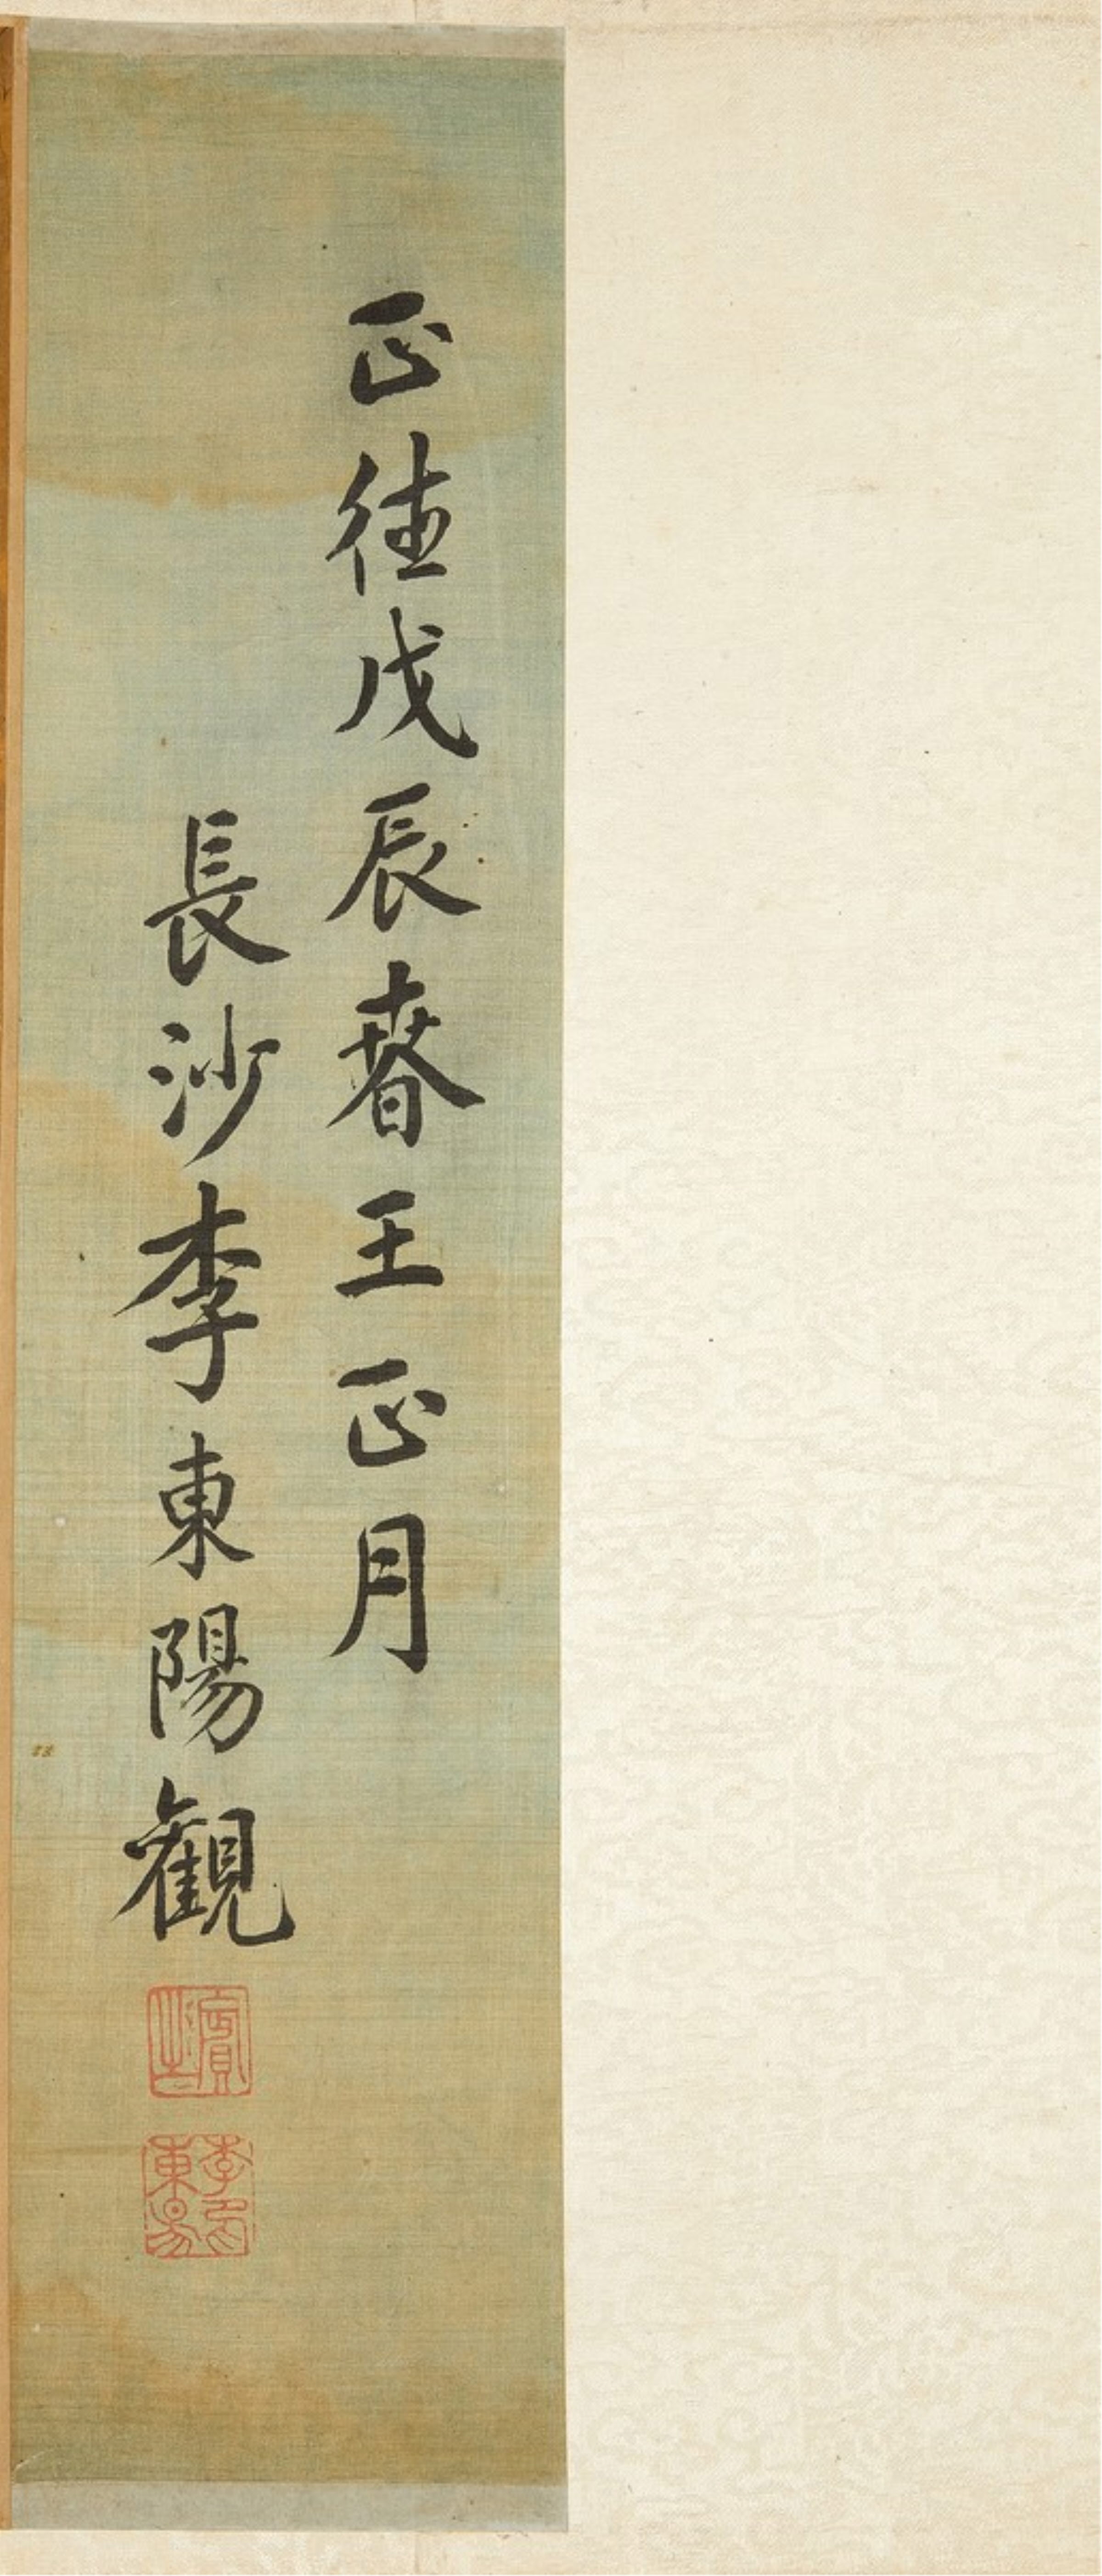 正德戊辰春王正月
長沙李東陽觀
李東昜印